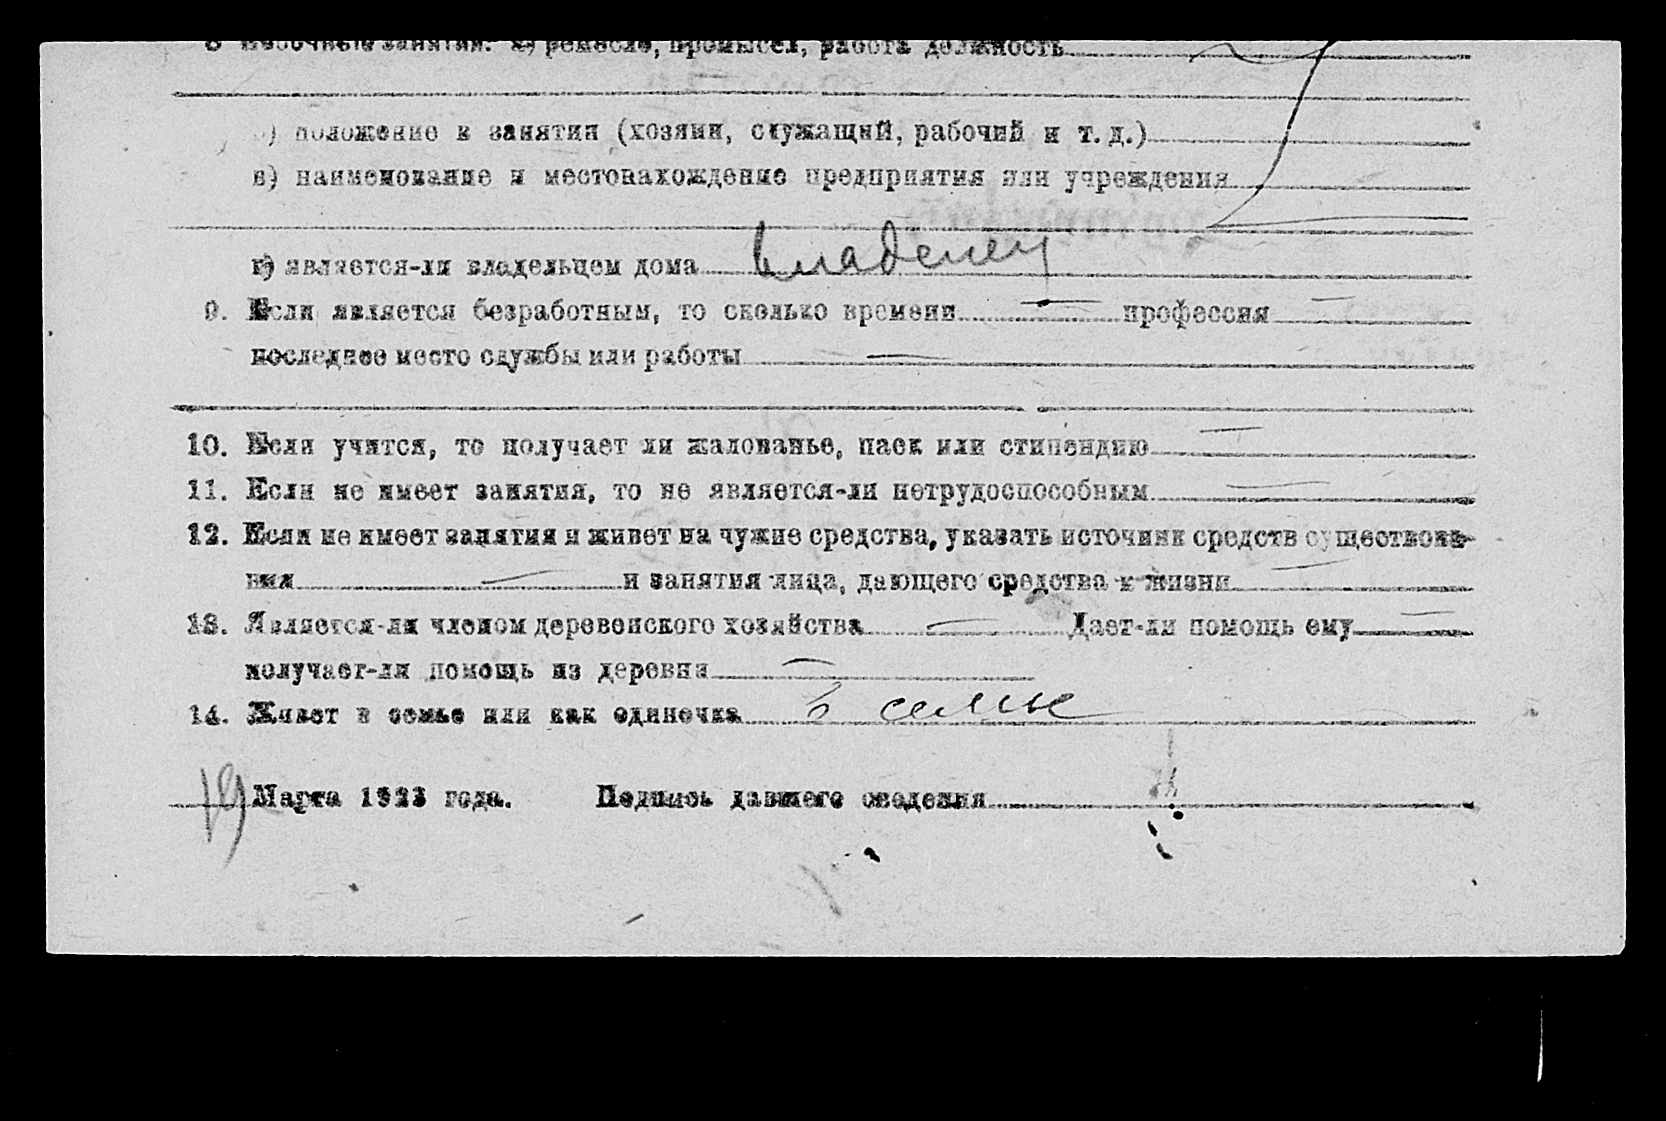 8 Побочные занятия: а) ремесло, промысел, работа должность
б) положение в занятии (хозяин, служащий, рабочий и т. д.)
в) наименование и местонахождение предприятия или учреждения
г) является-ли владельцем дома владелец
9. Если является безработным, то сколько времени — профессия —
последнее место службы или работы —
10. Если учится, то получает ли жалованье, паек или стипендию —
11. Если не имеет занятия, то не является-ли нетрудоспособным —
12. Если не имеет занятия и живет на чужие средства, указать источник средств существова-
ния — и занятия лица, дающего средства к жизни —
13. Является-ли членом деревенского хозяйства — Дает-ли помощь ему —
получает-ли помощь из деревни —
14. Живет в семье или как одиночка в семье
19 Марта 1923 года. Подпись давшего сведения